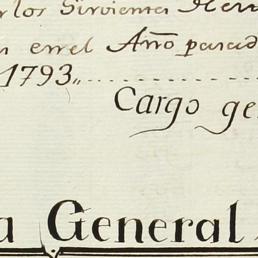 los Sirvientes
en el Año pasad
1793,,
Cargo ge
a General